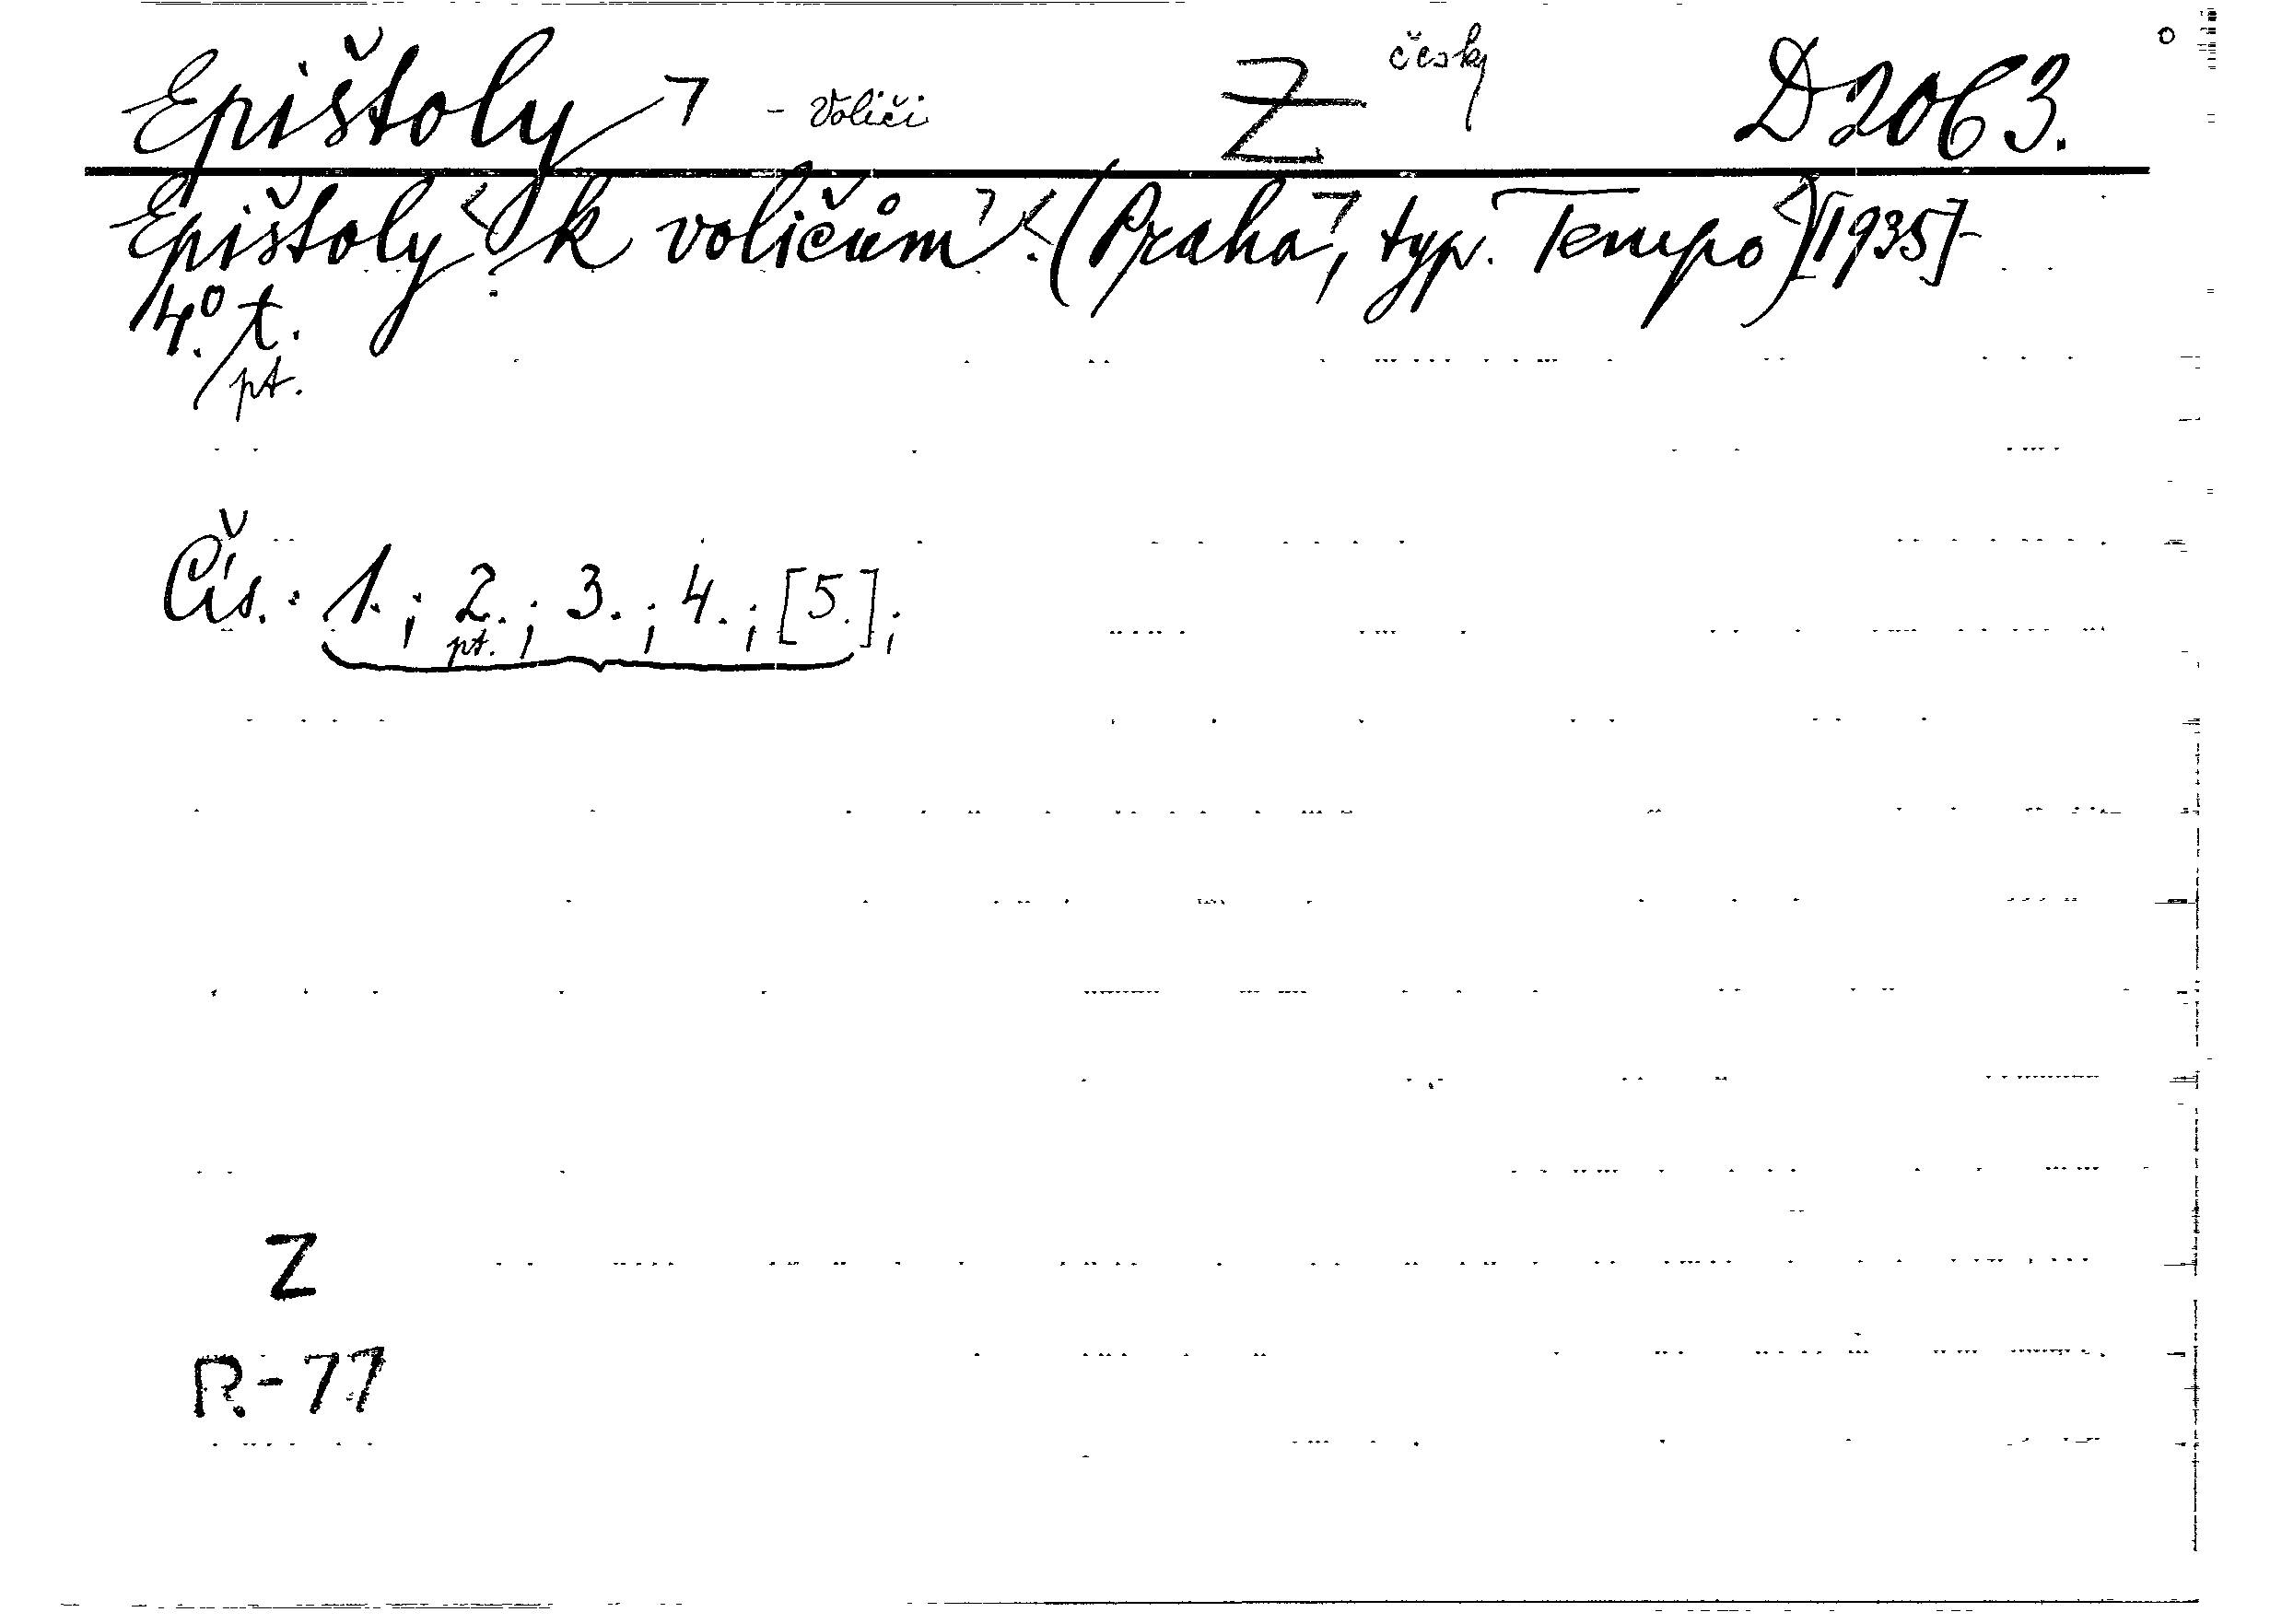 Epištoly - Voliči Z česky D 2063.
Epištoly k voličům. (Praha, typ. Tempo) [1935]-
4.° t.
pt.
Čís.: 1.; 2.; 3.; 4.; [5.];
pt.
Z
R-77